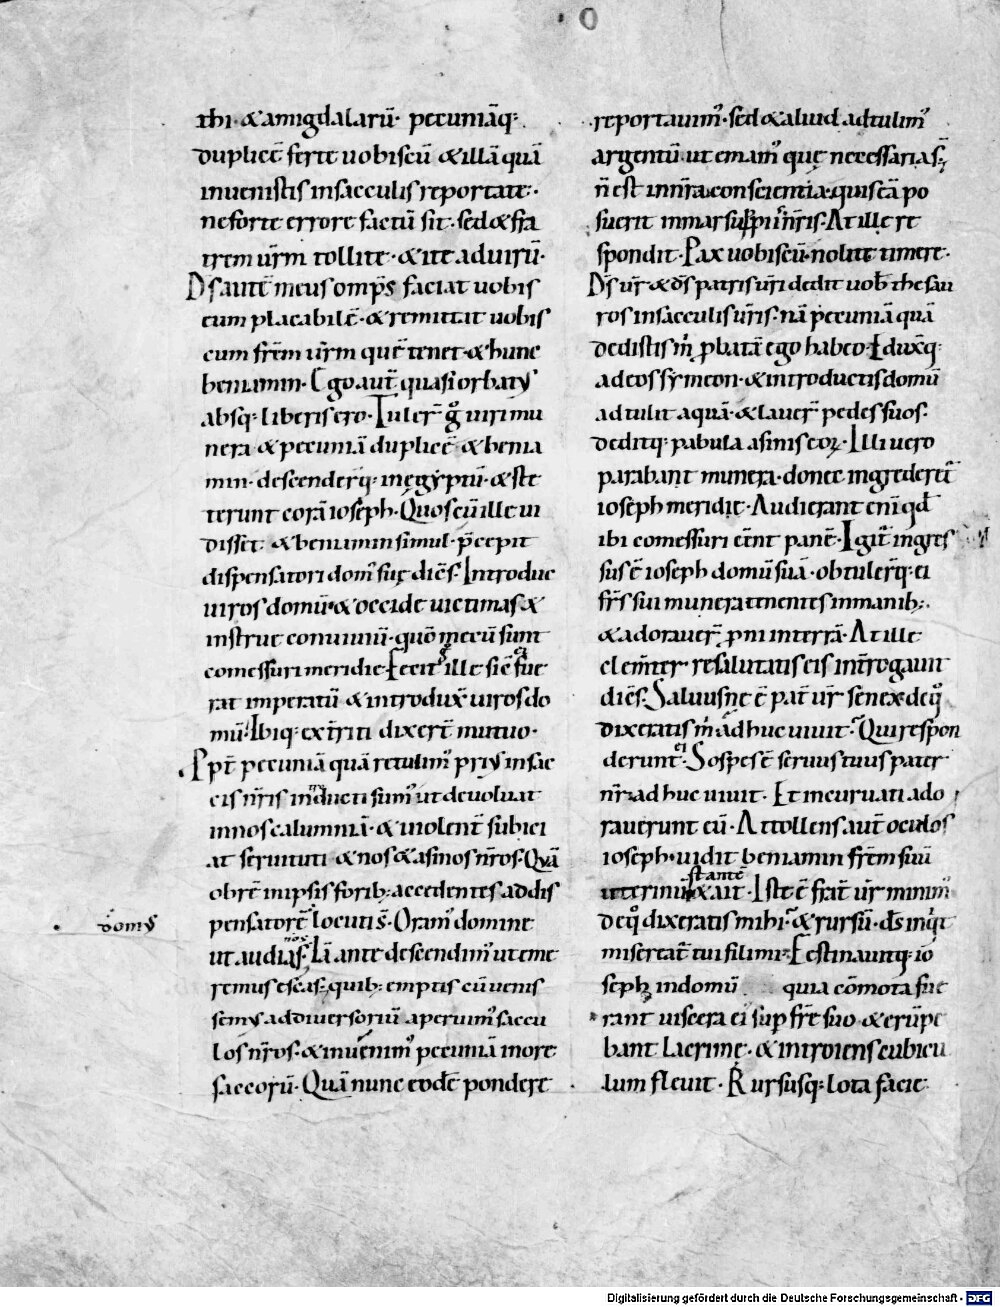 thi · & amigdalarū · pecuniāq;
duplicē ferte uobiscū & illā quā
inuenistis insacculis reportate ·
ne forte errore factū sit · sed & fra
trem ur̄m tollite · & ite aduirū ·
Ds̄ autē meus omp̄s faciat uobis
eum placabilē · & remittat uobis
cum fr̄em ur̄m quē tenet · & hunc
beniamin · Ego aut̄ quasi orbatus
absq; liberis ero · Tuler̄ g̊ uiri mu
nera & pecuniā duplicē & benia
min · descender̄q; inęgyptū · & ste
terunt corā ioseph · Quos cū ille ui
disset · & beniamin simul · p̄cepit
dispensatori domus suę dicēs · Introduc
uiros domū · & occide uictimas &
instrue conuiuiū · quō mecū sunt
comessuri meridie · Fecit ille sic̄ fue
rat imperatū & introdux̄ uiros do
mū · Ibiq; ext̄riti dixer̄t mutuo ·
Ppt̄ pecuniā quā retulim᾽ prius insac
cis nr̄is introducti sum᾽ ut deuoluat
innos calumniā · & uiolent̄ subici
at seruituti & nos & asinos nr̄os · Quā
obrē inipsis forib; accedentes addis
domus
pensatorē locuti s̄ · Oram᾽ domine
ut audias nos · Iā ante descendim᾽ ut eme
remus escas · quib; emptis cū uenis
semus addiuersoriū aperuim᾽ saccu
los nr̄os · & inuenim᾽ pecuniā inore
saccorū · Quā nunc eodē pondere
reportauim᾽ · sed & aliud adtulim᾽
argentū ut emam᾽ que necessaria s̄ ·
n̄ est innr̄a conscientia quis eā po
suerit inmarsuppiis nr̄is · At ille re
spondit · Pax uobiscū · nolite timere ·
Ds̄ ur̄ & ds̄ patris ur̄i dedit uob̄ thesau
ros insacculis ur̄is · nā pecuniā quā
dedistis m̄ pbatā ego habeo · Eduxq̄;
adeos symeon · & introductis domū
adtulit aquā · & lauer̄ pedes suos ·
deditq; pabula asinis eoꝝ · Illi uero
parabant munera · donec ingrederet̄
ioseph meridie · Audierant eni qd̄
ibi comessuri eēnt panē · Igit̄ ingres
sus ē ioseph domū suā · obtuler̄q; ei
fr̄s sui munera tenentes inmanib; ·
& adorauer̄ pni interrā · At ille
clemter̄ resalutatis eis int̄rogauit
dicēs · Saluusne ē pat̄ ur̄ senex · deq̊
dixeratis m̄ adhuc uiuit · Qui respon
derunt ei · Sospes ē seruus tuus pater
nr̄ · adhuc uiuit · Et incuruati ado
rauerunt eū · Attollens aut̄ oculos
ioseph · uidit beniamin fr̄em suū
stantē
uterinū & ait · Iste ē frat̄ ur̄ minim᾽
deq̊ dixeratis mihi · & rursū · ds̄ inqit
misereat̄ tui fili mi · Festinauitq; io
seph indomū quia cōmota fue
rant uiscera ei sup fr̄e suo & erūpe
bant lacrimę · & introiens cubicu
lum fleuit · Rursusq; lota facie
Digitalisierung gefördert durch die Deutsche Forschungsgemeinschaft - DFG